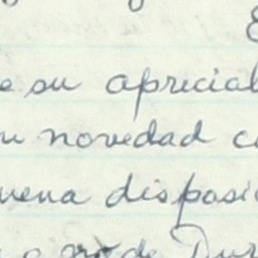 e su apreciab
u novedad c
uena disposic
de Dur